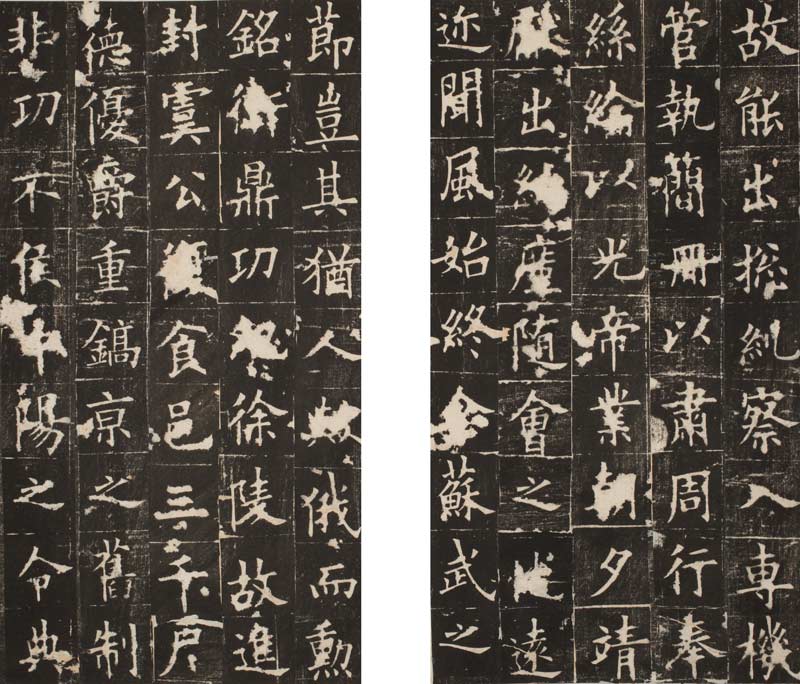 故能出揔糺察入専機
管執簡冊以肅周行奉
絲綸以光帝業朝夕靖
出納随會之遠
迩聞風始終全蘇武之
節豈其猶人歟俄而勳
銘衛鼎功徐陵故進
封虞公食邑三千戶
德優爵重鎬亰之舊制
非功不侯中陽之令典